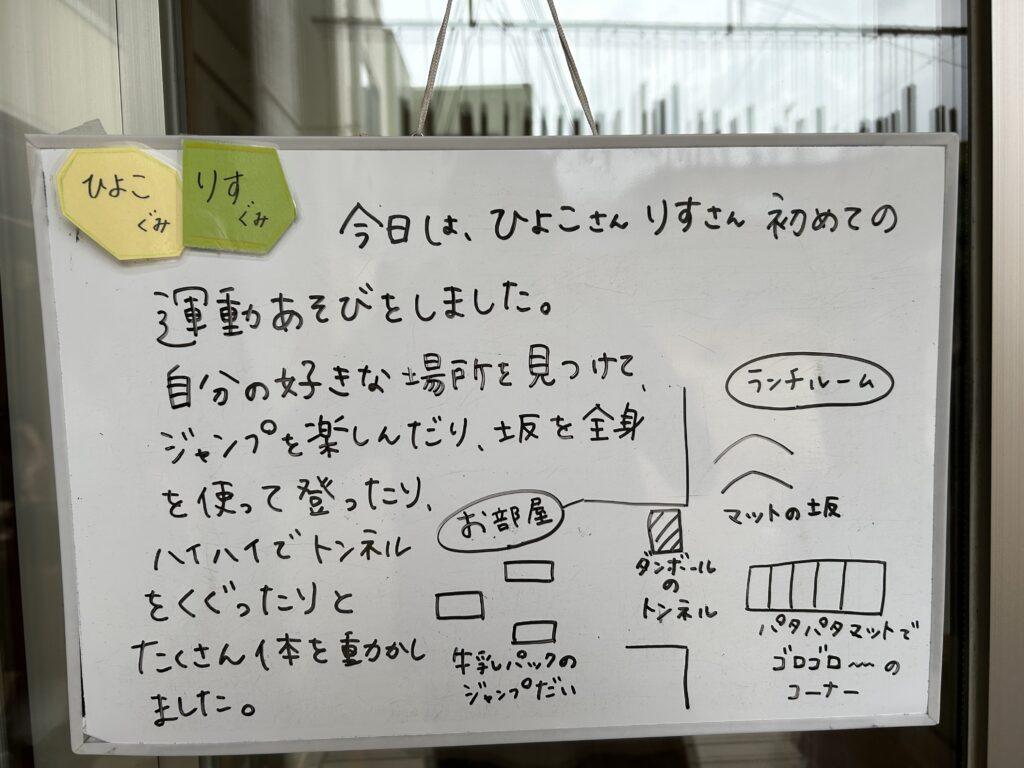 ひよこぐみ
りすぐみ
今日は、ひよこさん りすさん 初めての
運動あそびをしました。
自分の好きな場所を見つけて、
ジャンプを楽しんだり、坂を全身
を使って登ったり、
ハイハイでトンネル
をくぐったりと
たくさん体を動かし
ました。
お部屋
牛乳パックの
ジャンプだい
ダンボール
の
トンネル
ランチルーム
マットの坂
パタパタマットで
ゴロゴロ〜の
コーナー